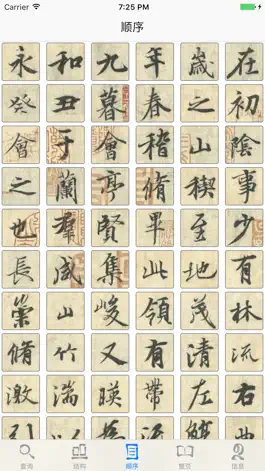 Carrier 7:25 PM 100%
顺序
永和九年歲在
癸丑暮春之初
會于會稽山陰
之蘭亭脩禊事
也羣賢畢至少
長咸集此地有
崇山峻領茂林
脩竹又有清流
激湍暎帶左右
引以
查询 结构 顺序 整页 信息